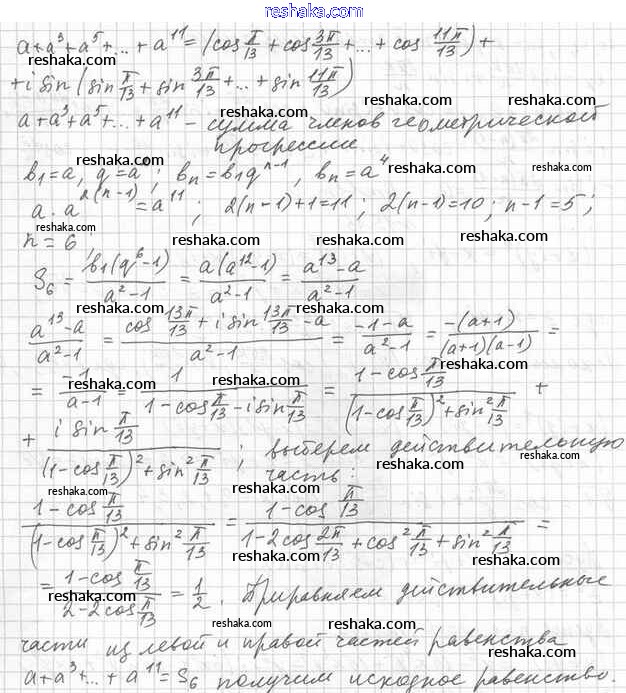 www.reshaka.com
reshaka.com
a+a³+a⁵+...+a¹¹=(cos π/13 + cos 3π/13 +...+ cos 11π/13)+
+i sin(sin π/13 + sin 3π/13 +...+ sin 11π/13)
reshaka.com reshaka.com
a+a³+a⁵+...+a¹¹ - сумма членов геометрической
прогрессии
reshaka.com reshaka.com reshaka.com
b₁=a, q=a²; bₙ=b₁qⁿ⁻¹, bₙ=a⁴
a·a²⁽ⁿ⁻¹⁾=a¹¹; 2(n-1)+1=11; 2(n-1)=10; n-1=5;
reshaka.com reshaka.com reshaka.com
n=6
reshaka.com reshaka.com
S₆ = b₁(q⁶-1)/(a²-1) = a(a¹²-1)/(a²-1) = (a¹³-a)/(a²-1)
reshaka.com reshaka.com reshaka.com
(a¹³-a)/(a²-1) = (cos 13π/13 + i sin 13π/13 - a)/(a²-1) = (-1-a)/(a²-1) = -(a+1)/((a+1)(a-1)) =
reshaka.com reshaka.com reshaka.com
= -1/(a-1) = 1/(1-cos π/13 - i sin π/13) = (1-cos π/13)/((1-cos π/13)²+sin² π/13) +
reshaka.com reshaka.com reshaka.com
+ (i sin π/13)/((1-cos π/13)²+sin² π/13); выберем действительную
часть:
reshaka.com reshaka.com reshaka.com
(1-cos π/13)/((1-cos π/13)²+sin² π/13) = (1-cos π/13)/(1-2cos 2π/13 + cos² π/13 + sin² π/13) =
reshaka.com reshaka.com
= (1-cos π/13)/(2-2cos π/13) = 1/2. Приравняем действительные
reshaka.com reshaka.com reshaka.com
части из левой и правой частей равенства
reshaka.com reshaka.com reshaka.com
a+a³+...+a¹¹=S₆ получим исходное равенство.